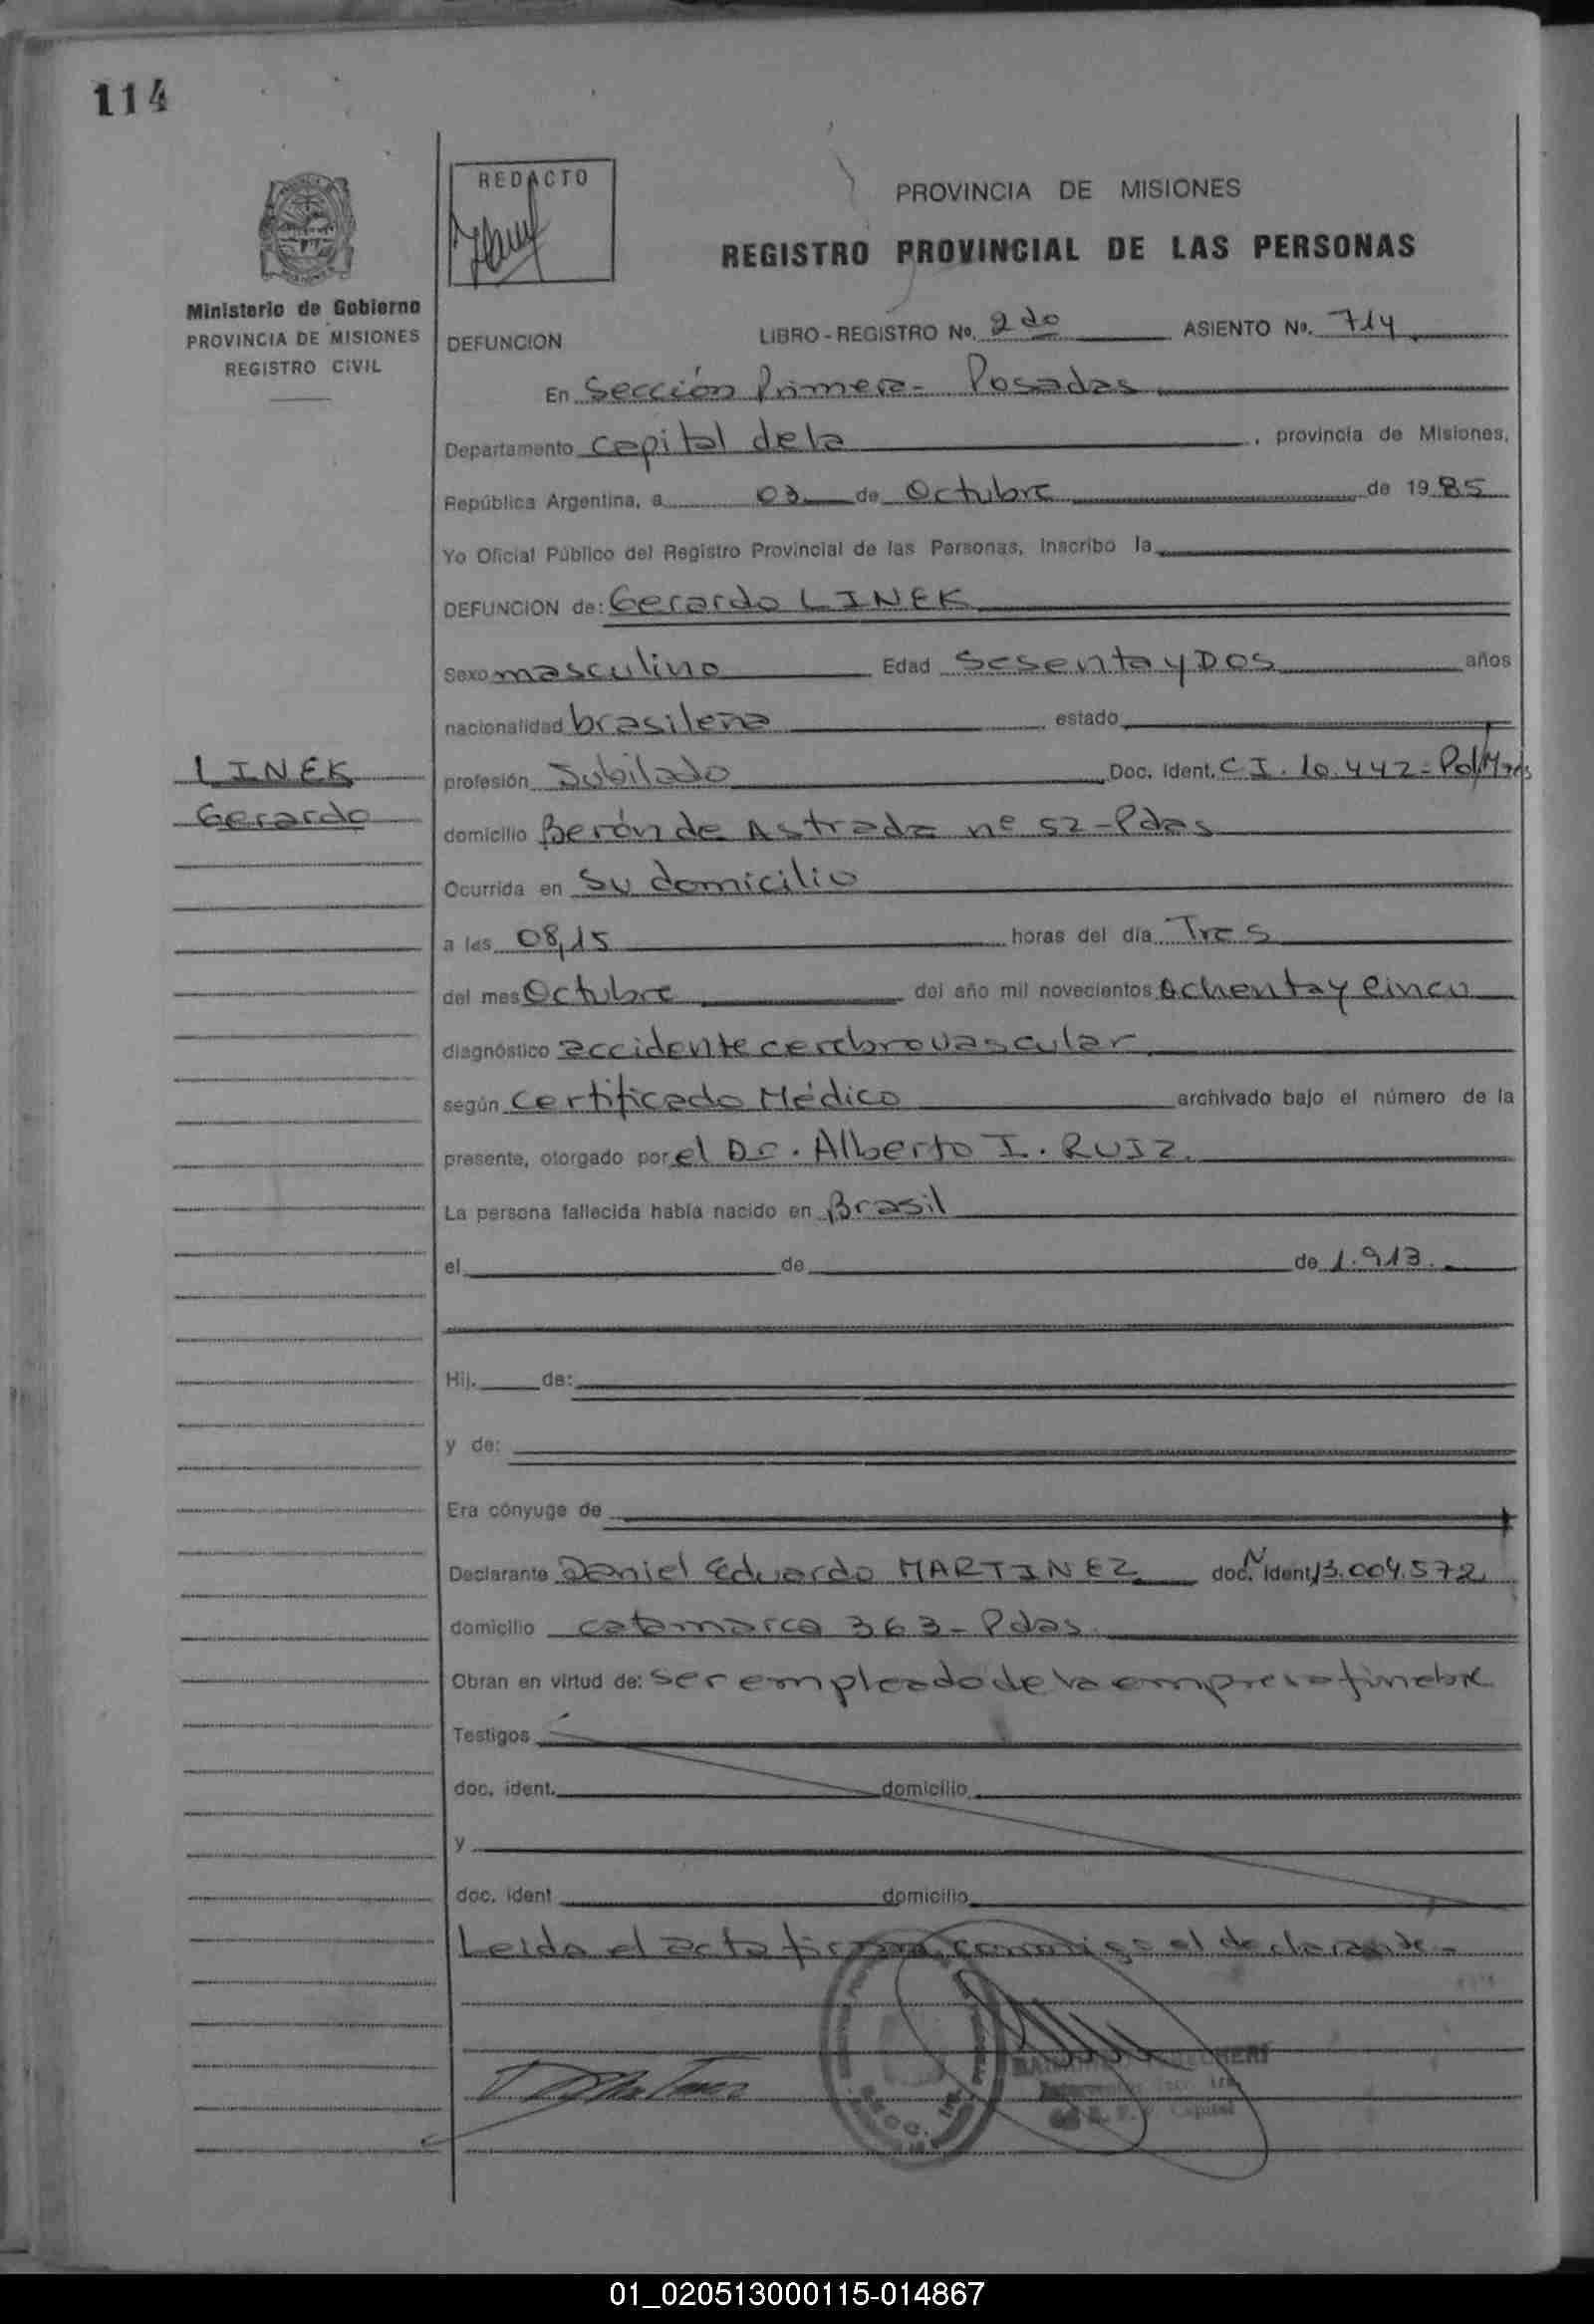 114
REDACTO
PROVINCIA DE MISIONES
REGISTRO PROVINCIAL DE LAS PERSONAS
Ministerio de Gobierno
PROVINCIA DE MISIONES
REGISTRO CIVIL
DEFUNCION LIBRO - REGISTRO Nº. 2do ASIENTO Nº. 714
En Sección Primera - Posadas
Departamento Capital de la , provincia de Misiones,
República Argentina, a 03 de Octubre de 1985
Yo Oficial Público del Registro Provincial de las Personas, inscribo la
DEFUNCION de: Gerardo LINEK
Sexo masculino Edad Sesenta y Dos años
nacionalidad brasileña estado
LINEK
Gerardo
profesión Jubilado Doc. Ident. C I. 10.442 - Pol/Mnes
domicilio Berón de Astrada nº 52 - Pdas
Ocurrida en Su domicilio
a las 08,15 horas del día Tres
del mes Octubre del año mil novecientos Ochenta y Cinco
diagnóstico accidente cerebro vascular
según Certificado Médico archivado bajo el número de la
presente, otorgado por el Dr. Alberto I. RUIZ.
La persona fallecida había nacido en Brasil
el de de 1.913.
Hij. de:
y de:
Era cónyuge de
Declarante Daniel Eduardo MARTINEZ doc. ident. 13.004.572
domicilio Catamarca 363 - Pdas.
Obran en virtud de: Ser empleado de la empresa fúnebre
Testigos
doc. ident. domicilio
y
doc. ident domicilio
Leida el acta firma conmigo el declarante -
SECC. 1ra
Capital
01_020513000115-014867